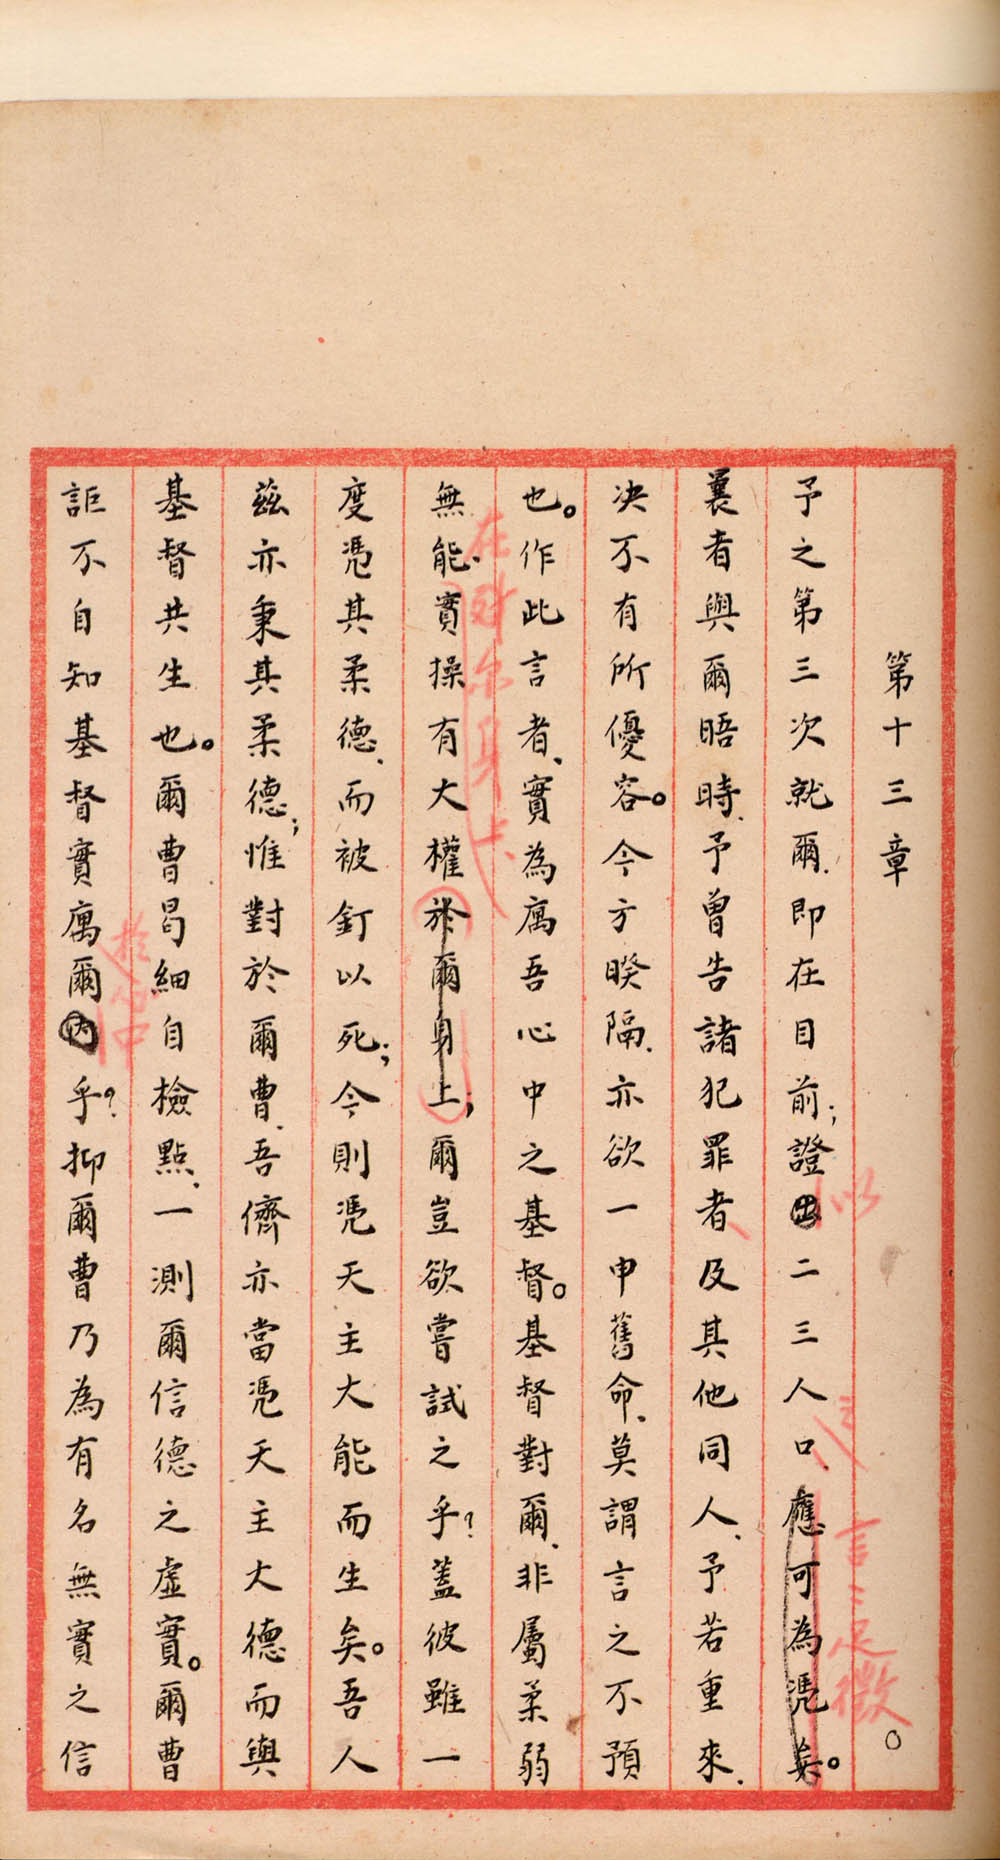 第十三章
予之第三次就爾、即在目前；證出二三人口、應可為凴矣。
以
言之足徵
曩者與爾晤時、予曾告諸犯罪者及其他同人、予若重來、
決不有所優容。今方暌隔、亦欲一申舊命、莫謂言之不預
也。作此言者、實為寓吾心中之基督。基督對爾、非屬柔弱
在對爾身上
無能、實操有大權於爾身上；爾豈欲嘗試之乎？蓋彼雖一
度凴其柔德、而被釘以死；今則凴天主大能而生矣。吾人
茲亦秉其柔德；惟對於爾曹、吾儕亦當凴天主大德而與
基督共生也。爾曹曷細自檢點、一測爾信德之虛實。爾曹
於窩中
詎不自知基督實寓爾內乎？抑爾曹乃為有名無實之信